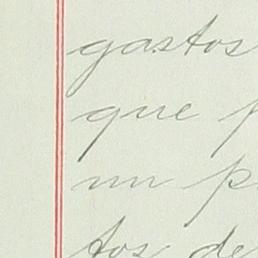 gastos
que p
un p
tos de